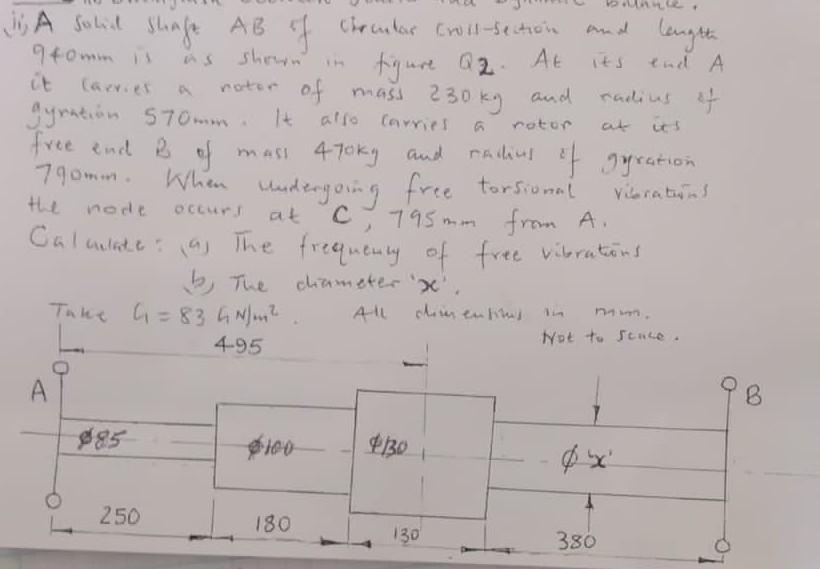 ii, A solid shaft AB of circular cross-section and length
940mm is as shown in figure Q2. At its end A
it carries a rotor of mass 230kg and radius of
gyration 570mm. It also carries a rotor at its
free end B of mass 470kg and radius of gyration
790mm. When undergoing free torsional vibrations
the node occurs at C, 795mm from A.
Calculate: (a) The frequency of free vibrations
(b) The diameter 'x'.
Take G = 83 GN/m². All dimensions in mm.
Not to scale.
495
A
B
ϕ85
ϕ100
ϕ130
ϕ 'x'
250
180
130
380